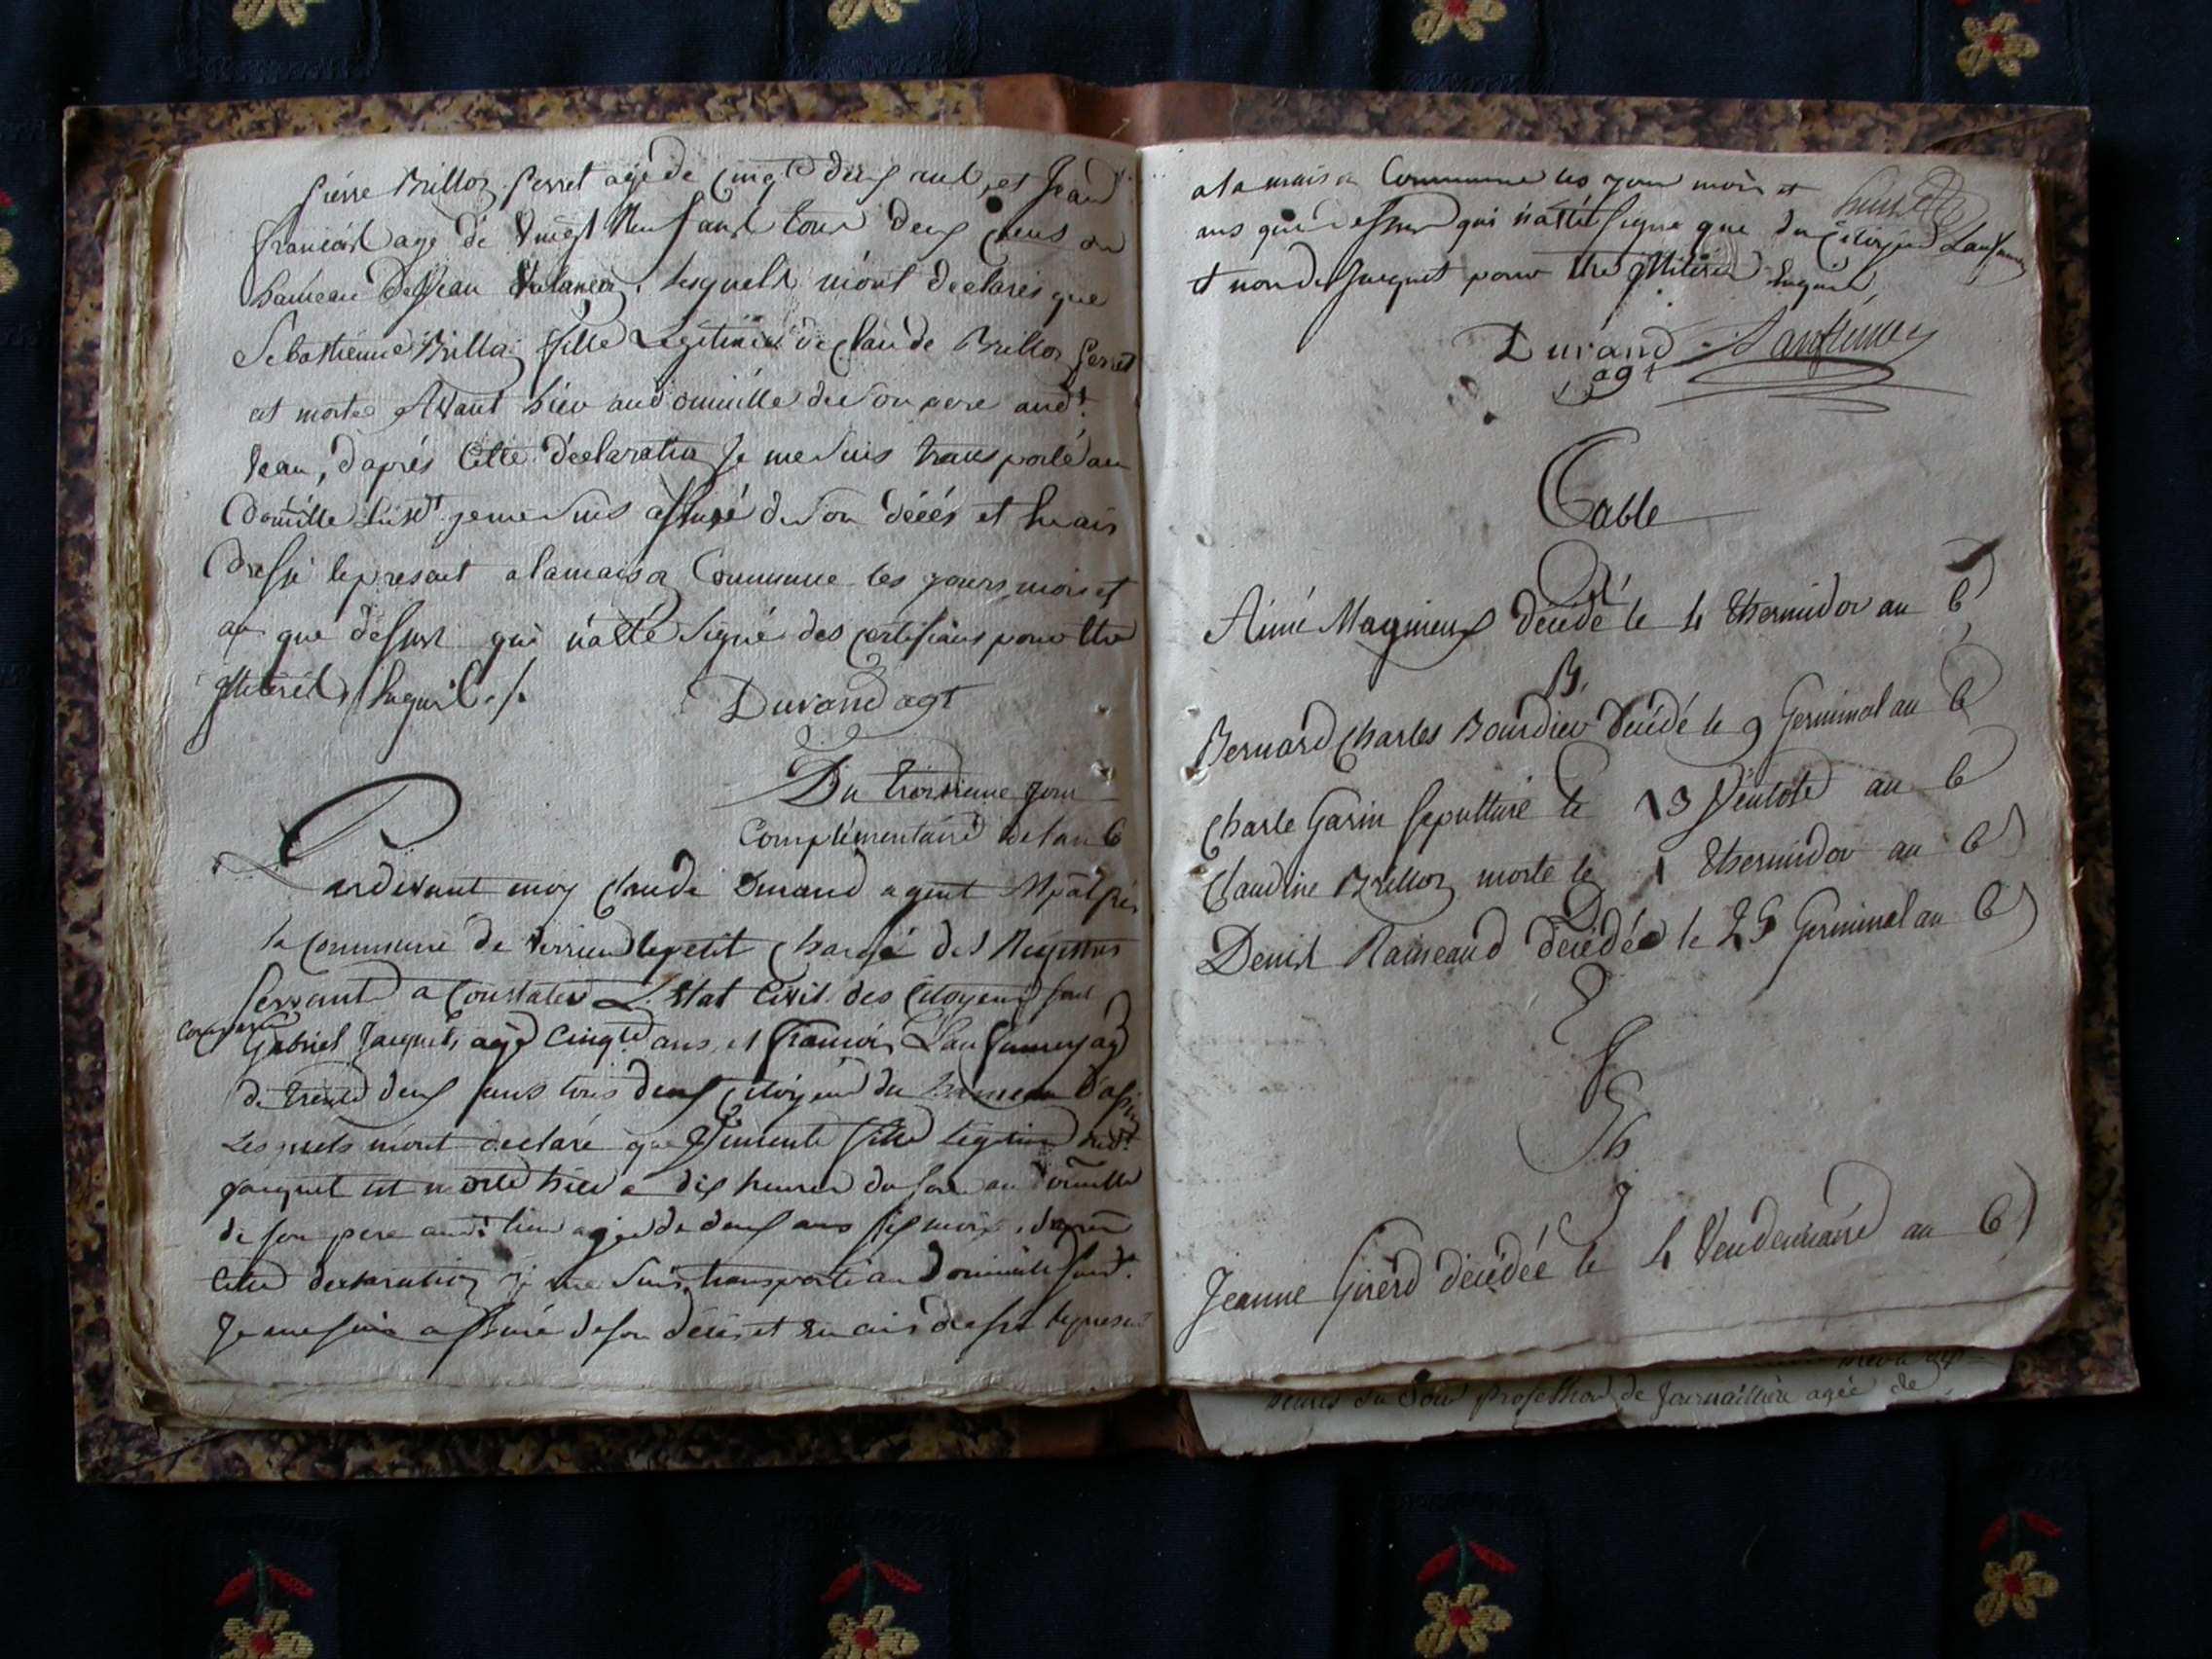 pierre Brillon perret agé de cinq.te deux ans, et Jean
francois agé de vingt neuf ans tous deux du
hameau de veau lesquels m'ont declarés que
Sebastienne Brillon fille Légitime de claude Brillon perret
est morte avant hier au domicille de son pere aud.t
veau, d'aprés cette déclaration je me suis transporté au
domicille susd.t je me suis assuré de son décés et en ais
dressé le present a la maison Commune les jours mois et
an que dessus qui n'a été signé des certifians pour être
illiteré, Enquis ./.
Durand agt
Du troisieme jour
Complémentaire de l'an 6
Pardevant moy claude Durand agent
la Commune de verrieu le petit chargé des Registres
servant a Constater L'Etat Civil des Citoyens sont
comparu
Gabriel Jacquet, agé cinq.te ans, et francois Laufumey agé
de trente deux ans tous deux citoyens du hameau
Lesquels m'ont declaré que fille légitime dud.t
jacquet est morte hier a dix heures du soir au domicille
de son pere aud.t lieu agée de deux ans six mois, d'aprés
cette declaration je me suis transporté au domicille susd.t
Je me suis assuré de son décés et En ais dressé le present
a la maison Commune les jour mois et
ans que dessus qui n'a été signé que du citoyen Laufumey
et non de Jacquet pour être illiteré Enquis,
Durand Laufumey
agt
Table
A
Aimé Magnieux decédé le 4 thermidor an 6
B,
Bernard Charles Bourdier decédé le 9 Germinal an 6
C
Charle Garin sepulture le 13 ventose an 6
Claudine Brillon morte le 1 thermidor an 6
D
Denis Raineaud decédée le 25 Germinal an 6
E
F
G
h
J
Jeanne Girerd decédée le 4 vendemiaire an 6
heures du Soir profession de Journaillière agée de